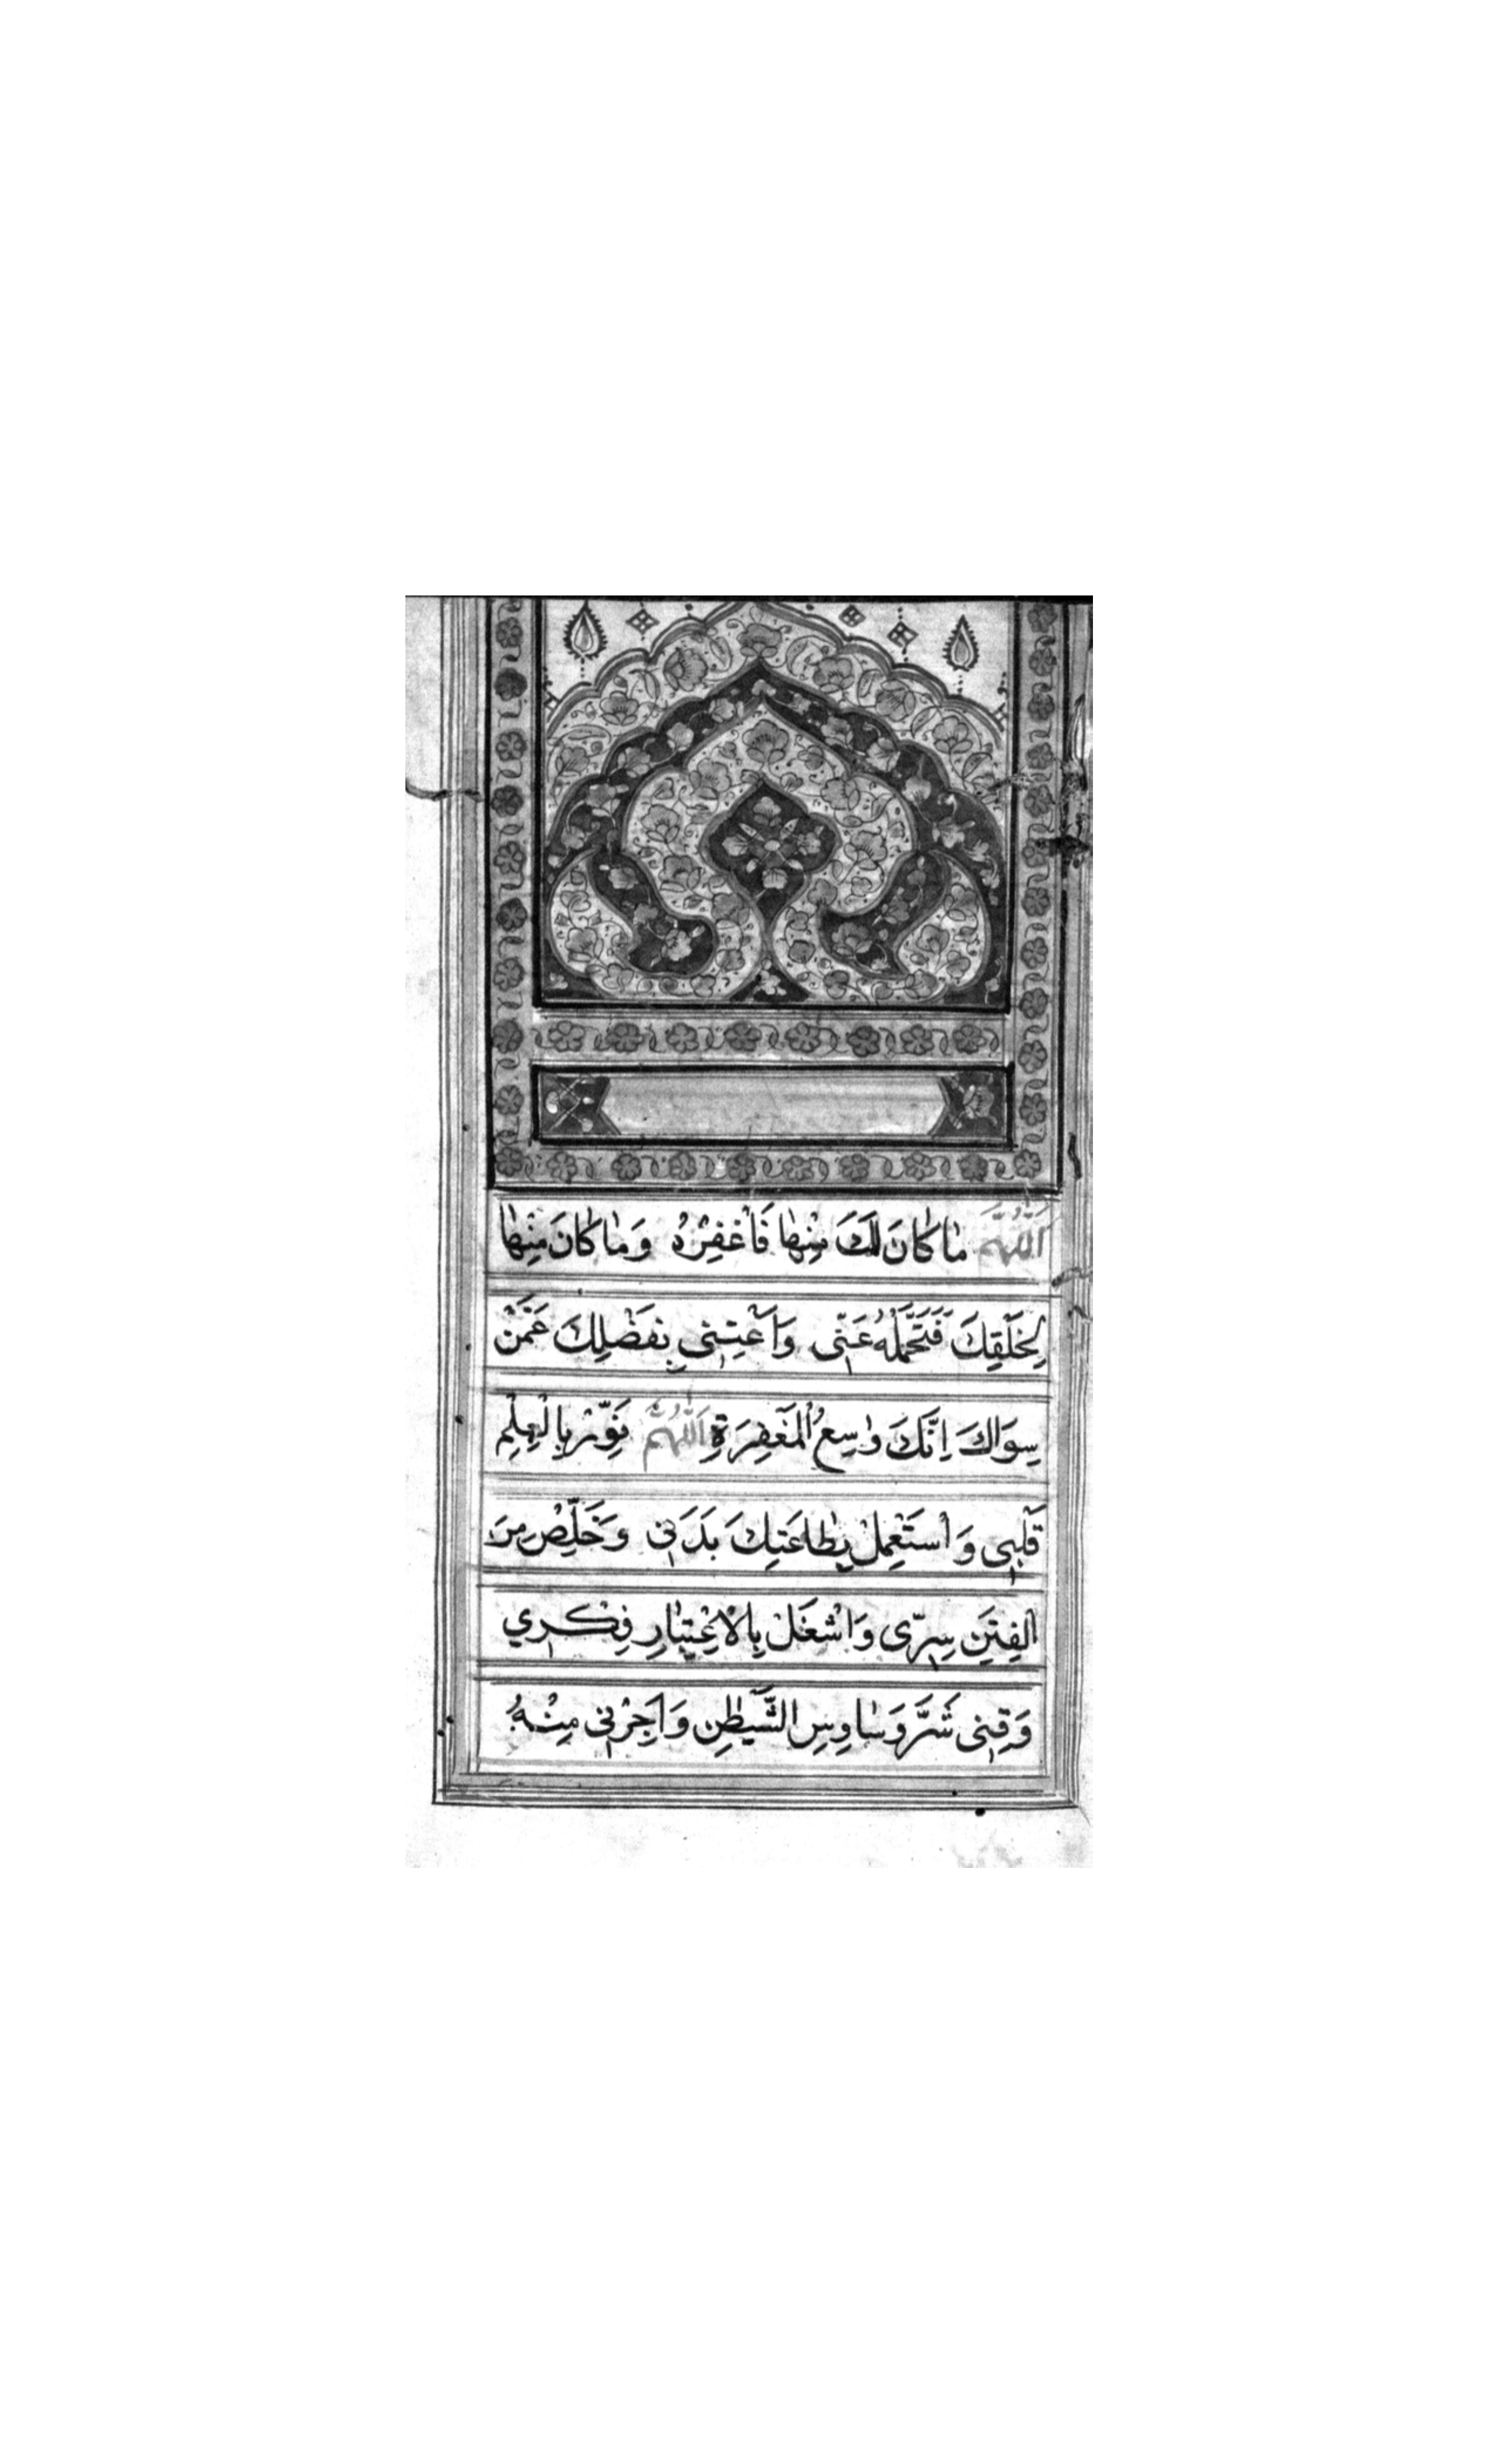 اَللّٰهُمَّ مٰا كٰانَ لَكَ مِنْهٰا فَاْغْفِرْهُ وَمٰا كٰانَ مِنْهٰا
لِخَلْقِكَ فَتَحَمَّلْهُ عَنّٖى وَاَغْنِنٖى بِفَضْلِكَ عَمَّنْ
سِوَاكَ اِنَّكَ وٰاسِعُ الْمَغْفِرَةِ اَللّٰهُمَّ نَوِّرْ بِالْعِلْمِ
قَلْبٖى وَاْسْتَعْمِلْ بِطٰاعَتِكَ بَدَنٖى وَخَلِّصْ مِنَ
الْفِتَنِ سِرّٖى وَاشْغَلْ بِالْاِعْتِبٰارِ فِكْرٖي
وَقِنٖى شَرَّ وَسٰاوِسِ الشَّيْطٰنِ وَاَجِرْنٖى مِنْهُ